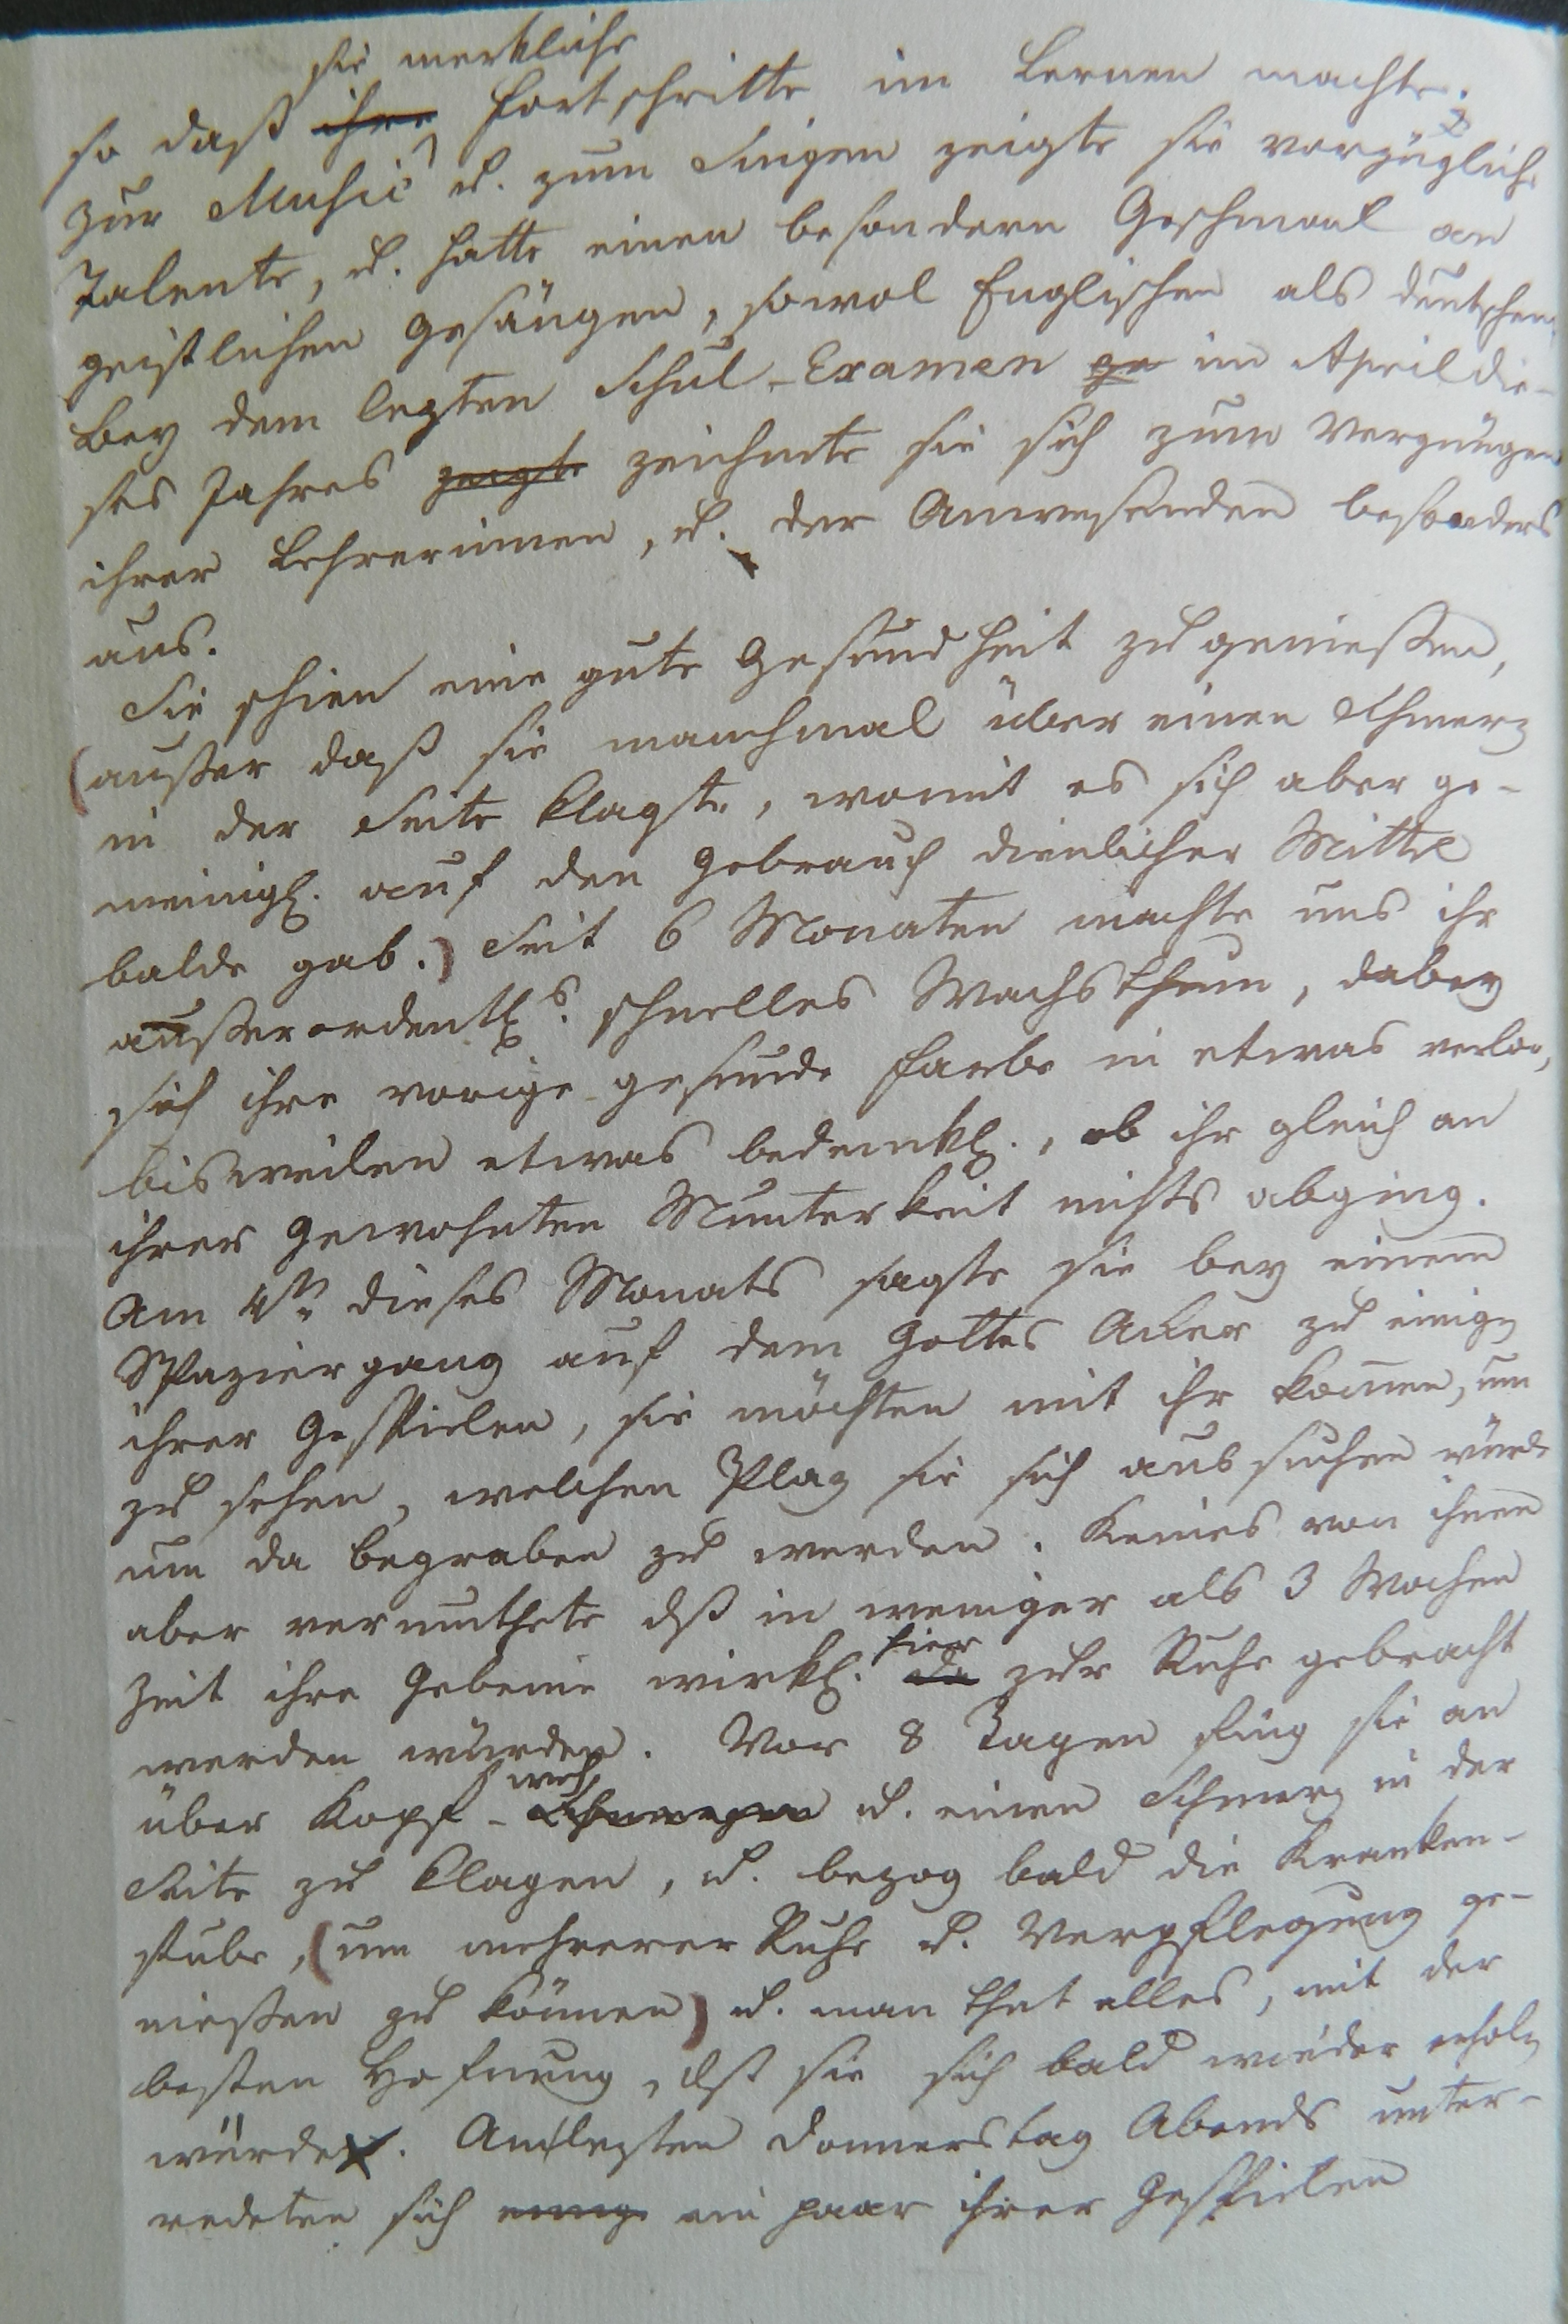 sie merkliche
so daß ihre Fortschritte im Lernen machte.
Zur Music u. zum Singen zeigte sie vorzügliche
Talente, u. hatte einen besondern Geschmak an
geistlichen Gesängen, sowol Englischen als deutschen.
Bey dem lezten Schul-Examen ge im April die-
ses Jahres zeigte zeichnete sie sich zum Vergnügen
ihrer Lehrerinnen, u. der Anwesenden besonders
aus.
Sie schien eine gute Gesundheit zu genießen,
(außer daß sie manchmal über einen Schmerz
in der Seite klagte, womit es sich aber ge-
meinigl. auf den Gebrauch dienlicher Mittel
balde gab.) Seit 6 Monaten machte uns ihr
außerordentl.s schnelles Wachsthum, dabey
sich ihre vorige gesunde Farbe in etwas verlor,
bisweilen etwas bedenkl., ob ihr gleich an
ihrer gewohnten Munterkeit nichts abging.
Am 4ten dieses Monats sagte sie bey einem
Spaziergang auf dem Gottes Aker zu einigen
ihrer Gespielen, sie möchten mit ihr kom̅en, um
zu sehen, welchen Plaz sie sich aussuchen würde
um da begraben zu werden. Keines von ihnen
aber vermuthete dß in weniger als 3 Wochen
hier
Zeit ihre Gebeine wirkl. da zur Ruhe gebracht
werden würden. Vor 8 Tagen fing sie an
weh
über Kopf-Schmerzen u. einen Schmerz in der
Seite zu klagen, u. bezog bald die Kranken-
stube, (um mehrerer Ruhe u. Verpflegung ge-
nießen zu können) u. man that alles, mit der
besten Hofnung, dß sie sich bald wieder erholen
würde. Am lezten Donnerstag Abends unter-
redeten sich einige ein paar ihrer Gespielen